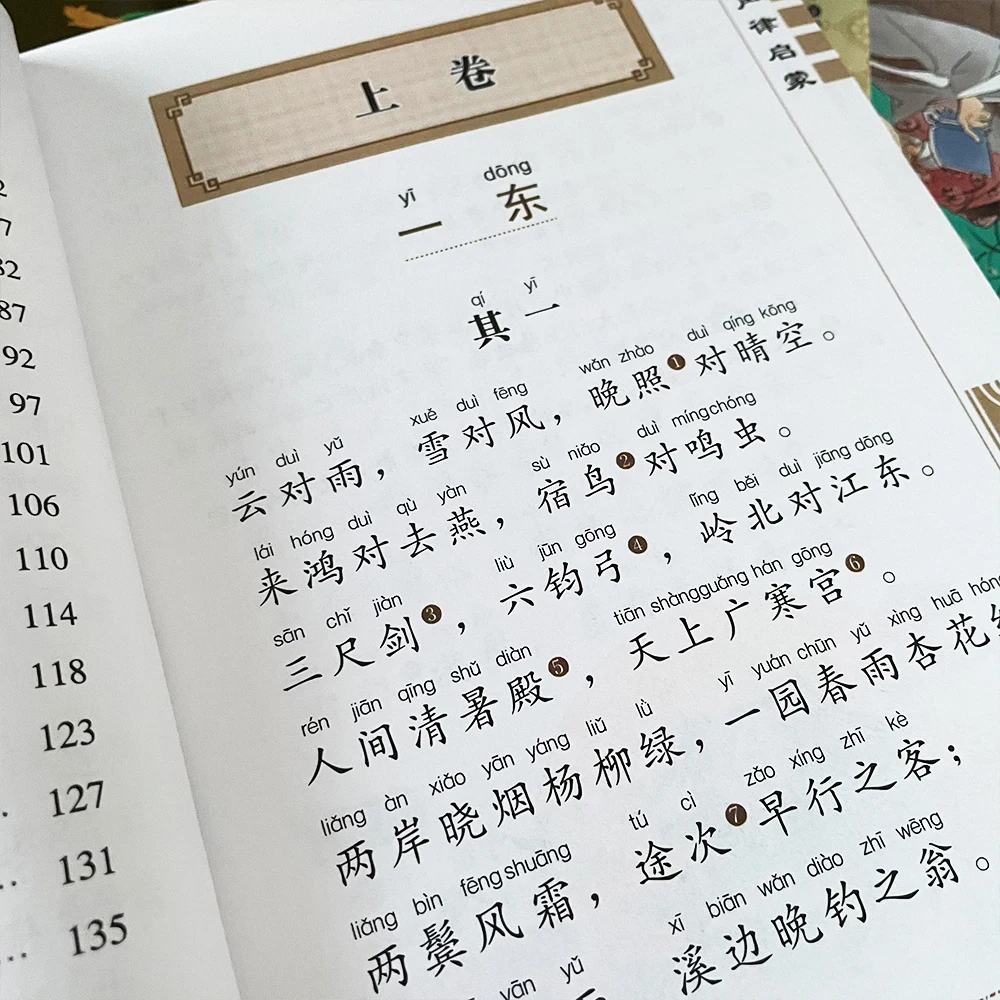 2
7
82
87
92
97
101
106
110
114
118
123
127
131
135
律启蒙
上卷
yī dōng
一 东
qí yī
其一
yún duì yǔ xuě duì fēng wǎn zhào duì qíng kōng
云对雨，雪对风，晚照❶对晴空。
lái hóng duì qù yàn sù niǎo duì míng chóng
来鸿对去燕，宿鸟❷对鸣虫。
sān chǐ jiàn liù jūn gōng lǐng běi duì jiāng dōng
三尺剑❸，六钧弓❹，岭北对江东。
rén jiān qīng shǔ diàn tiān shàng guǎng hán gōng
人间清暑殿❺，天上广寒宫❻。
liǎng àn xiǎo yān yáng liǔ lǜ yī yuán chūn yǔ xìng huā hóng
两岸晓烟杨柳绿，一园春雨杏花
liǎng bìn fēng shuāng tú cì zǎo xíng zhī kè
两鬓风霜，途次❼早行之客；
yān yǔ xī biān wǎn diào zhī wēng
溪边晚钓之翁。